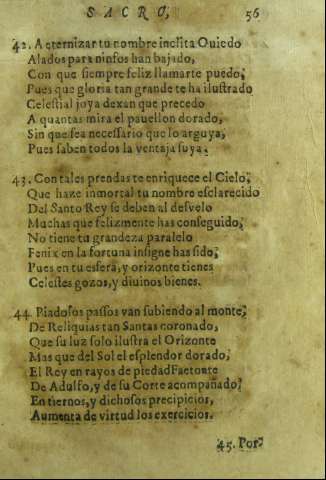 SACRO, 56
42. A eternizar tu nombre inclita Ouiedo
Alados para ninfos han bajado,
Con que siempre feliz llamarte puedo;
Pues que gloria tan grande te ha ilustrado
Celestial joya dexan que precedo
A quantas mira el pauellon dorado,
Sin que sea necessario que lo arguya,
Pues saben todos la ventaja suya.
43. Con tales prendas te enriquece el Cielo;
Que haze inmortal tu nombre esclarecido
Del Santo Rey se deben al desvelo
Muchas que felizmente has conseguido;
No tiene tu grandeza paralelo
Fenix en la fortuna insigne has sido;
Pues en tu esfera, y orizonte tienes
Celestes gozos, y diuinos bienes.
44. Piadosos passos van subiendo al monte;
De Reliquias tan Santas coronado,
Que su luz solo ilustra el Orizonte
Mas que del Sol el esplendor dorado;
El Rey en rayos de piedad Faetonte
De Adulfo, y de su Corte acompañado;
En tiernos, y dichosos precipicios,
Aumenta de virtud los exercicios.
45. Por